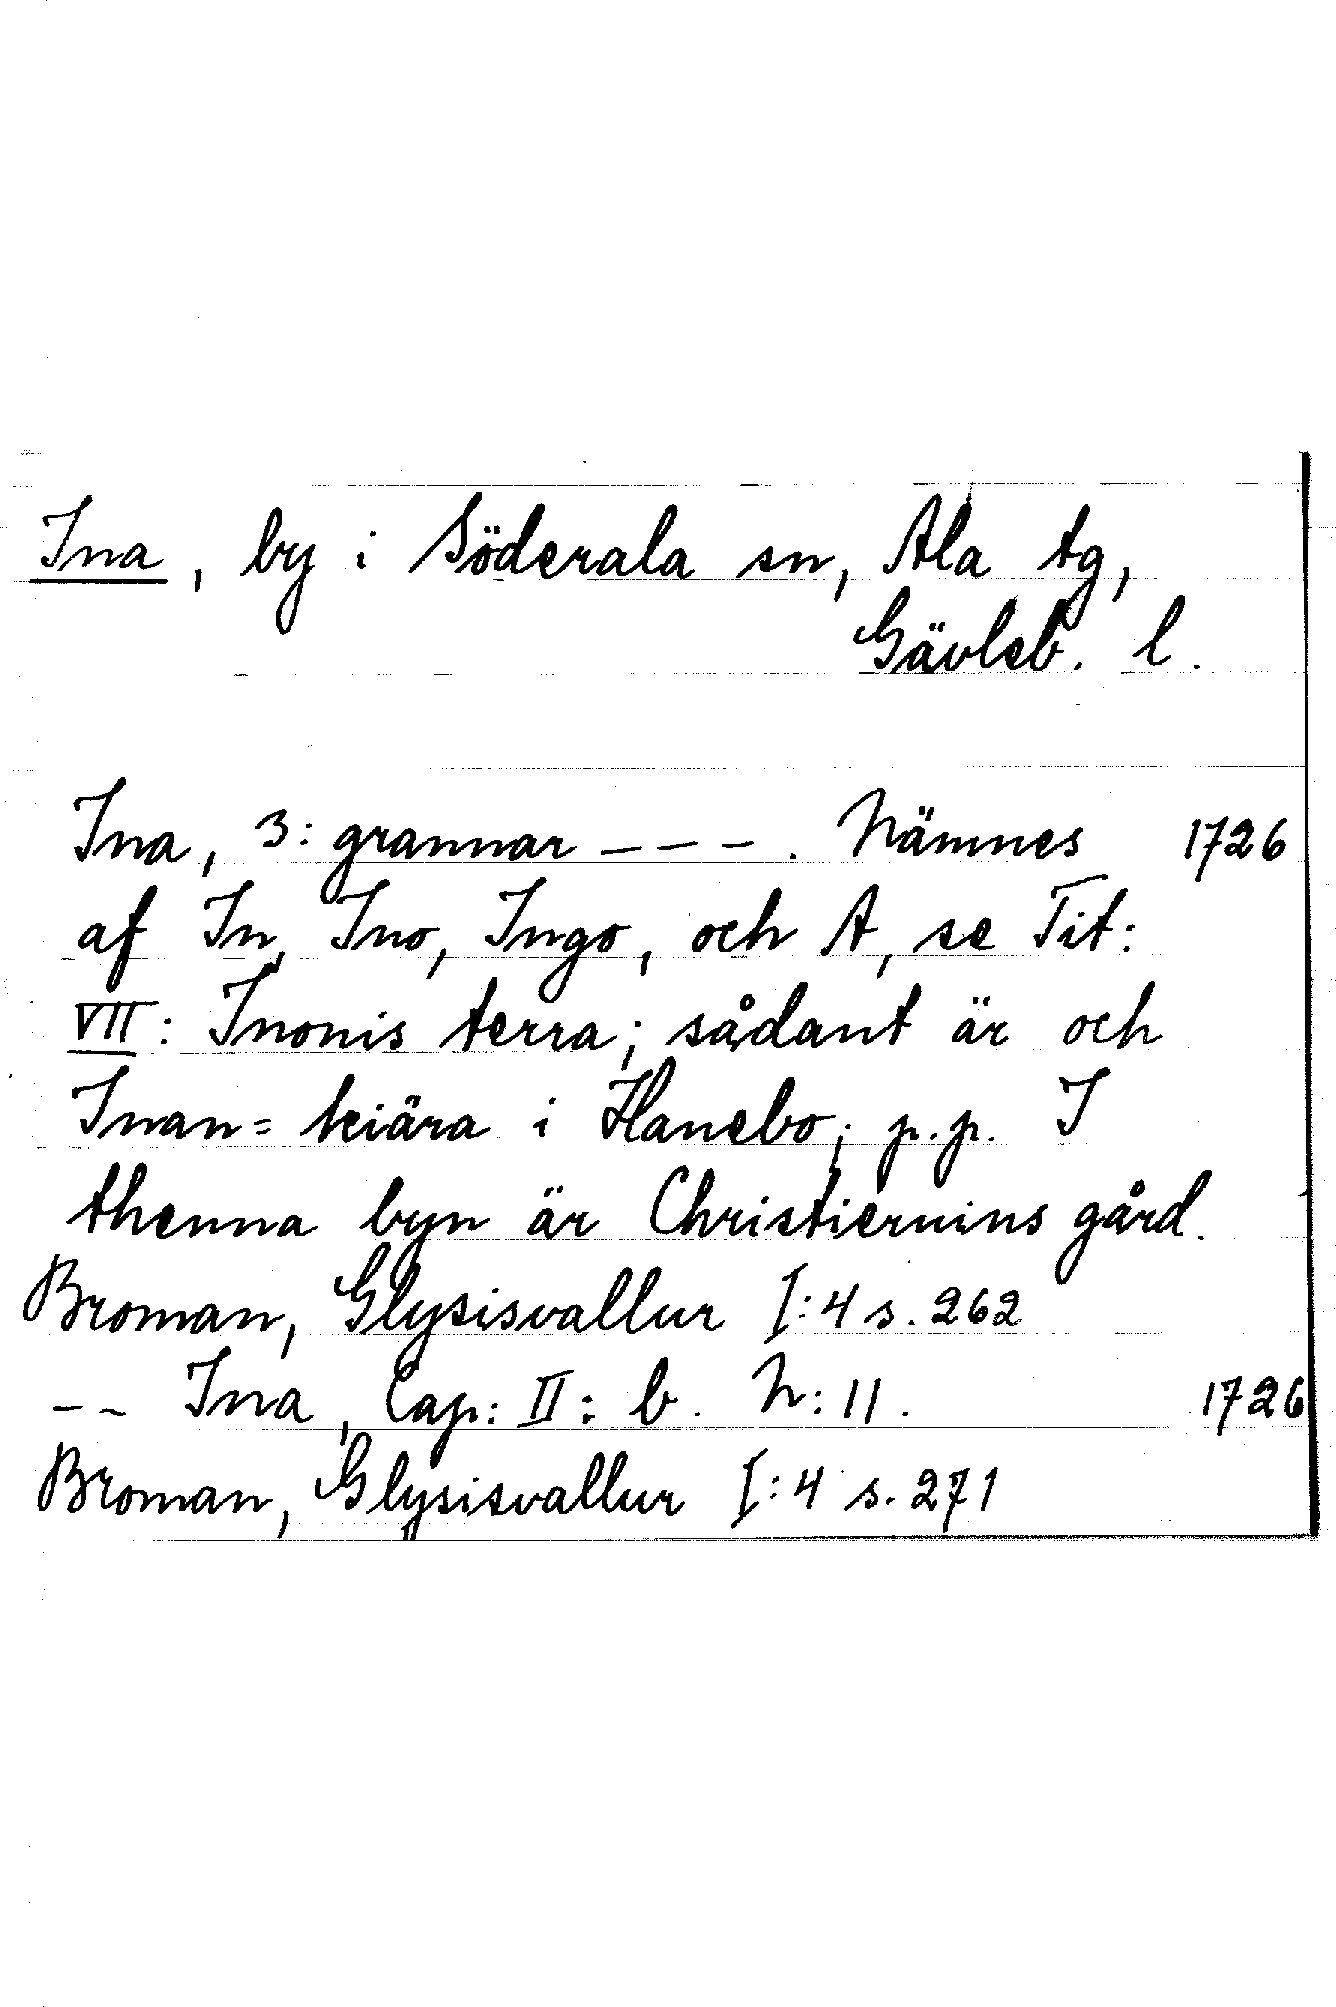 Ina, by i Söderala sn, Ala tg,
Gävleb. l.
Ina, 3: grannar - - - . Nämnes 1726
af In, Ino, Ingo, och A, se Tit:
VII: Inonis terra; sådant är och
Inan= kiära i Hanebo; p.p. I
thenna byn är Christiernins gård.
Broman, Glysisvallur I:4 s. 262
-- Ina, Cap: II: b. N: 11. 1726
Broman, Glysisvallur I:4 s. 271